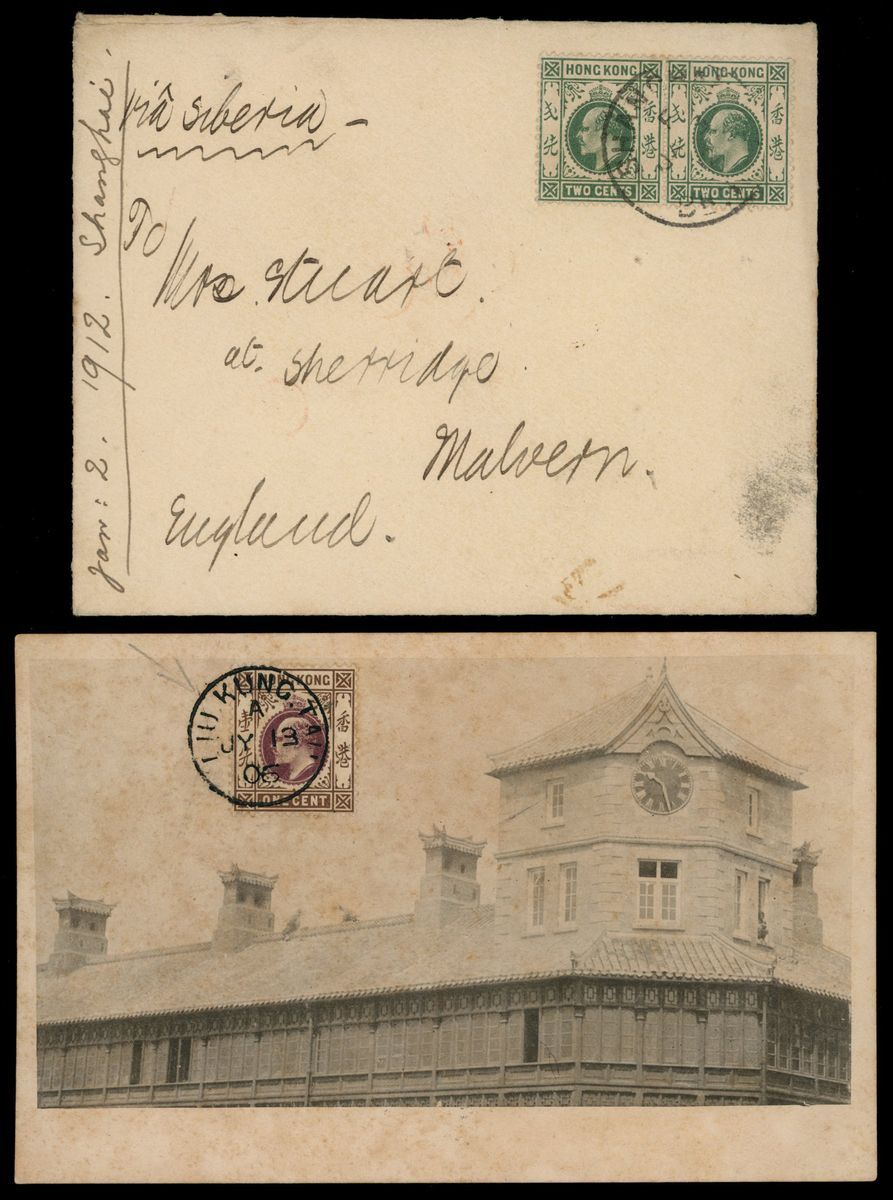 Jan: 2. 1912. Shanghai.
viâ Siberia -
To
Mrs. Stuart.
at. Sherridge
Malvern.
England.
HONG KONG
香港
TWO CENTS
HONG KONG
香港
TWO CENTS
SHANGHAI
LIU KUNG TAU
A
JY 13
06
HONG KONG
壹先
香港
ONE CENT